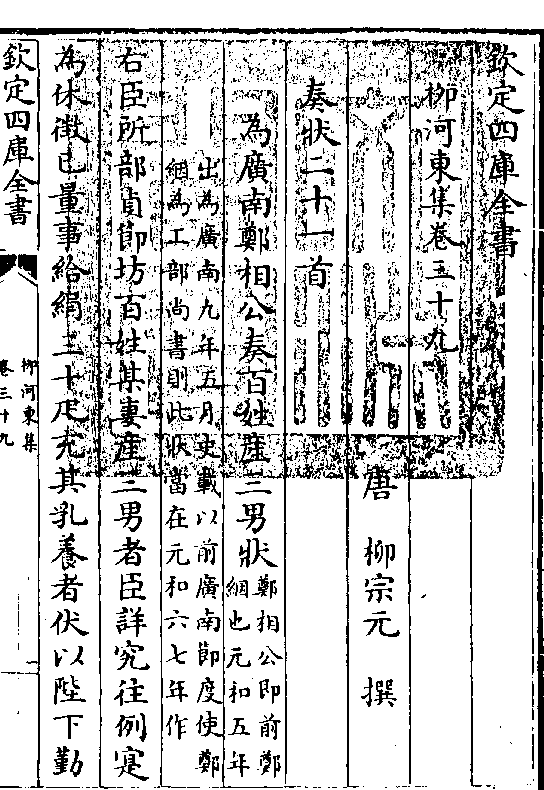 欽定四庫全書
柳河東集卷三十九
唐 柳宗元 撰
奏狀二十一首
為廣南鄭相公奏百姓產三男狀
鄭相公即前鄭
絪也元和五年
出為廣南九年五月史載以前廣南節度使鄭
絪為工部尚書則此狀當在元和六七年作
右臣所部貞節坊百姓某妻產三男者臣詳究往例寔
為休徵已量事給絹三十疋充其乳養者伏以陛下勤
欽定四庫全書
柳河東集
卷三十九
一